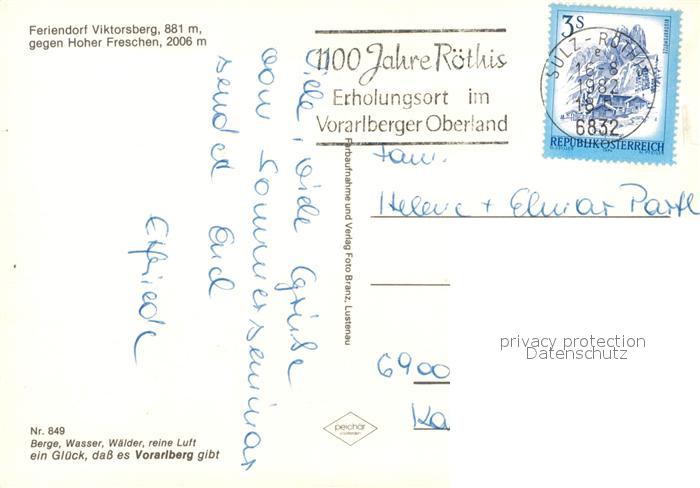 Feriendorf Viktorsberg, 881 m,
gegen Hoher Freschen, 2006 m
1100 Jahre Röthis
Erholungsort im
Vorarlberger Oberland
3S
SULZ-RÖTHIS
16.8
1982
18
6832
REPUBLIK ÖSTERREICH
Viele, viele Grüße
vom Sommerseminar
sendet Euch
Elfriede
Farbaufnahme und Verlag Foto Branz, Lustenau
Fam.
Helene + Elmar Partl
6900
privacy protection
Datenschutz
peichär
Nr. 849
Berge, Wasser, Wälder, reine Luft
ein Glück, daß es Vorarlberg gibt